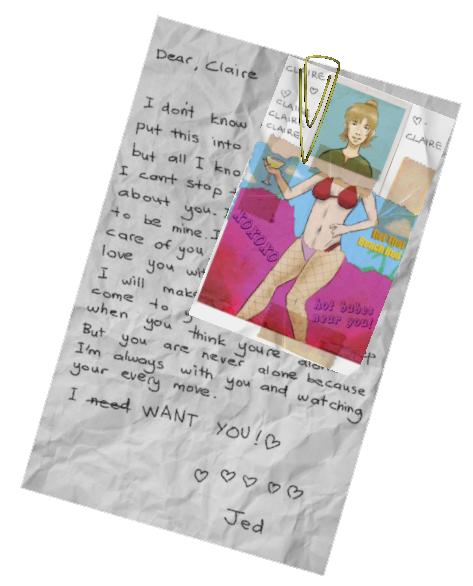 Dear, Claire
I don't know
put this into
but all I kno
I cant stop
about you.
to be mine. I
care of you
love you wit
I will make
come to y
when you think youre alon
But you are never alone because
I'm always with you and watching
your every move.
I need WANT YOU!♡
♡ ♡ ♡ ♡ ♡
Jed
CLAIRE
♡
♡
♡
CLAIRE
CLAIRE
CLAIRE
CLAIRE
XOXOXO
Beach Bod
hot babes
near you!